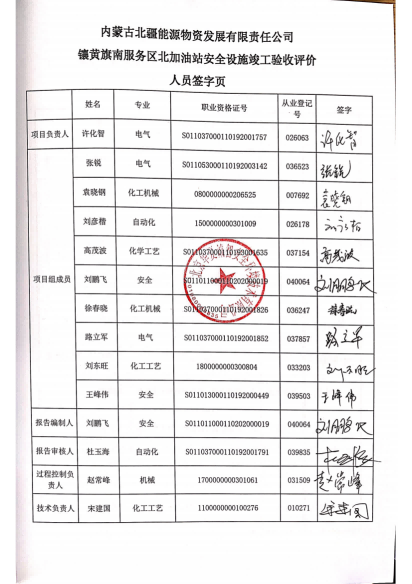 内蒙古北疆能源物资发展有限责任公司
镶黄旗南服务区北加油站安全设施竣工验收评价
人员签字页
姓名 专业 职业资格证号 从业登记号 签字
项目负责人 许化智 电气 S011037000110192001757 026063 许化智
项目组成员 张锐 电气 S011053000110192003142 036523 张锐
袁晓钢 化工机械 0800000000206525 007692 袁晓钢
刘彦楷 自动化 1500000000301009 026178
高茂波 化学工艺 S011037000110192001635 037154 高茂波
刘鹏飞 安全 S011011000110202000019 040064 刘鹏飞
徐春晓 化工机械 S011037000110192001826 036247 徐春晓
路立军 电气 S011037000110192001852 037857 路立军
刘东旺 化工工艺 1800000000300804 033203 刘东旺
王峰伟 安全 S011013000110192000449 039503 王峰伟
报告编制人 刘鹏飞 安全 S011011000110202000019 040064 刘鹏飞
报告审核人 杜玉海 自动化 S011037000110192001791 039835
过程控制负责人 赵常峰 机械 1700000000301061 031509 赵常峰
技术负责人 宋建国 化工工艺 1100000000100276 010271 宋建国